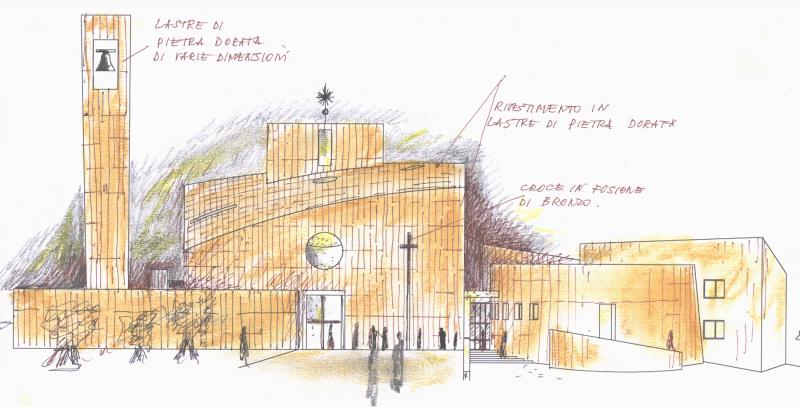 LASTRE DI
PIETRA DORATA
DI VARIE DIMENSIONI
RIVESTIMENTO IN
LASTRE DI PIETRA DORATA
CROCE IN FUSIONE
DI BRONZO.